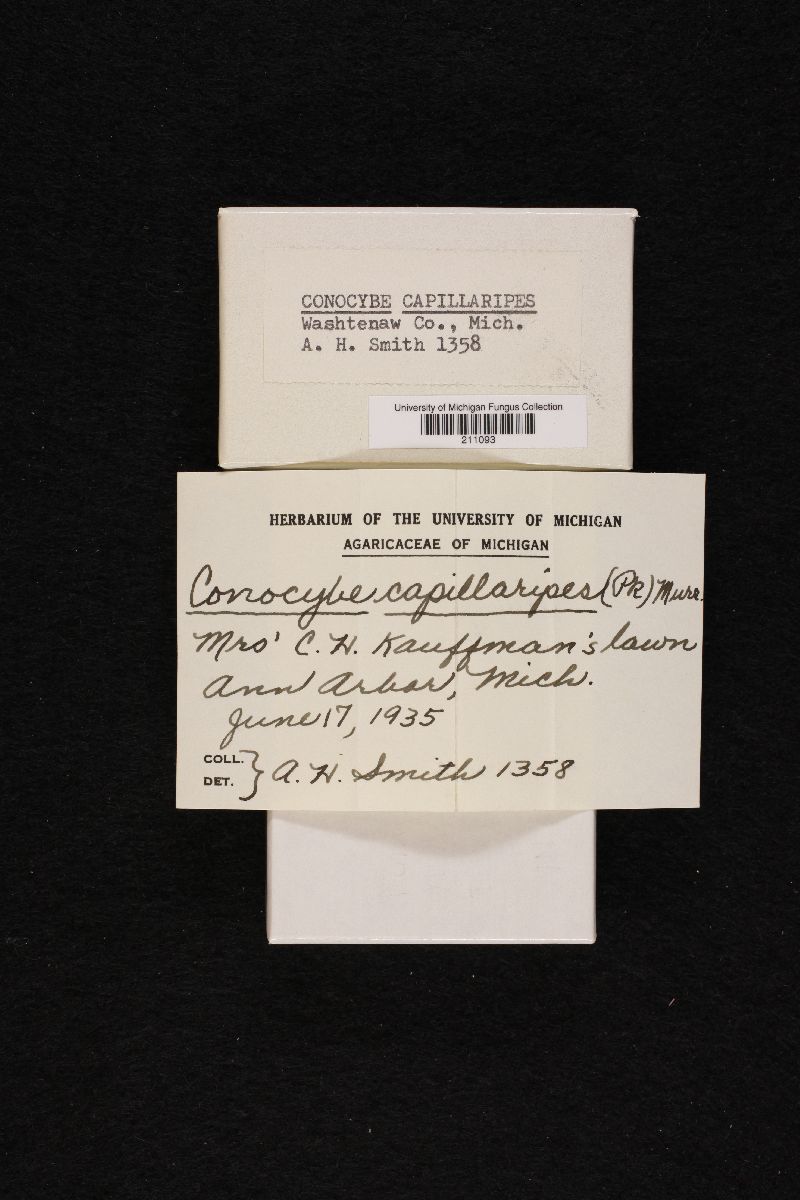 CONOCYBE CAPILLARIPES
Washtenaw Co., Mich.
A. H. Smith 1358
University of Michigan Fungus Collection
211093
HERBARIUM OF THE UNIVERSITY OF MICHIGAN
AGARICACEAE OF MICHIGAN
Conocybe capillaripes (Pk) Murr.
Mrs' C. H. Kauffman's lawn
Ann Arbor, Mich.
June 17, 1935
COLL.
DET. } A. H. Smith 1358